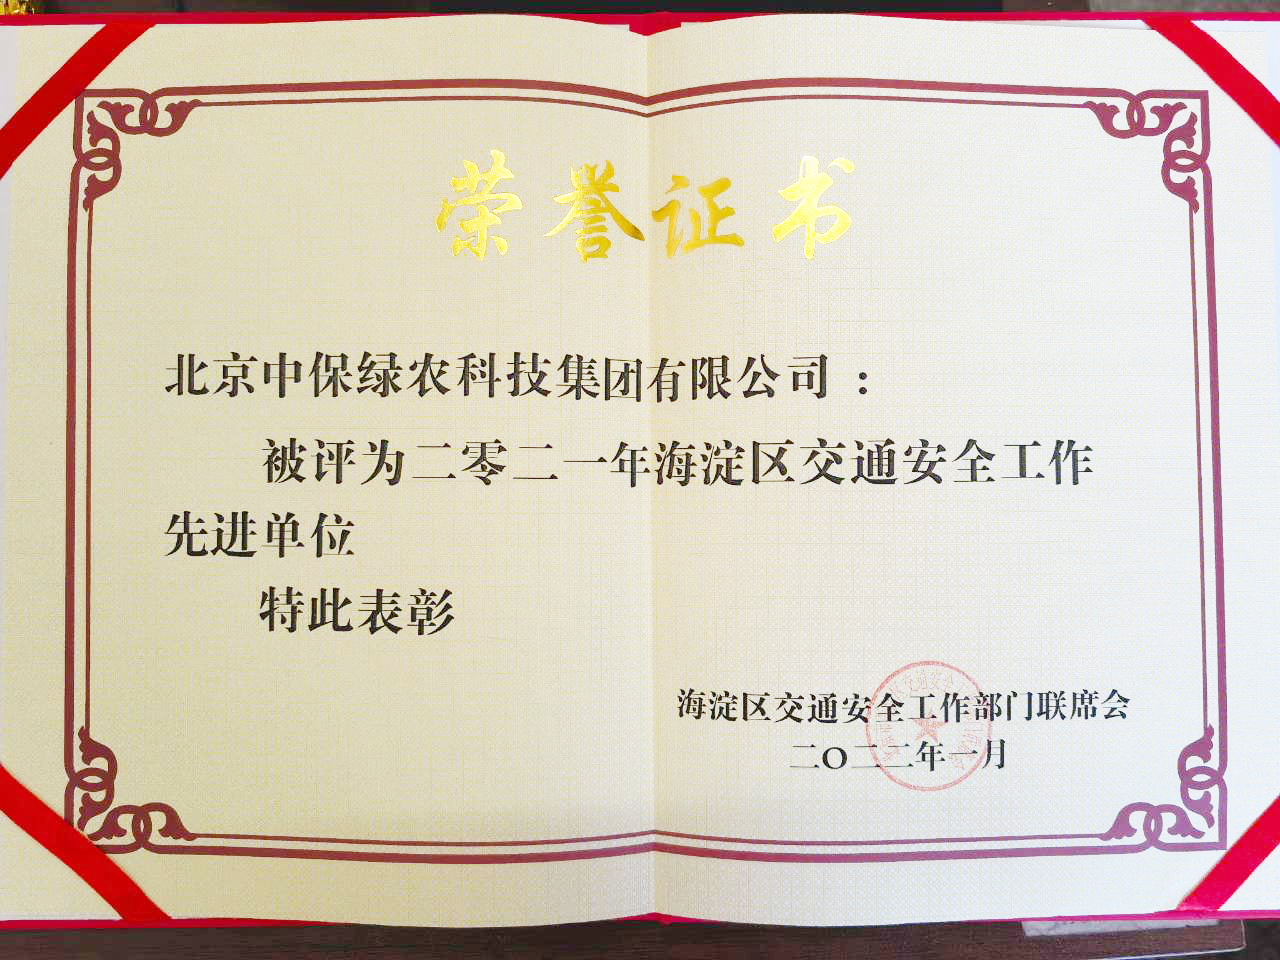 荣誉证书
北京中保绿农科技集团有限公司：
被评为二零二一年海淀区交通安全工作
先进单位
特此表彰
海淀区交通安全工作部门联席会
二〇二二年一月